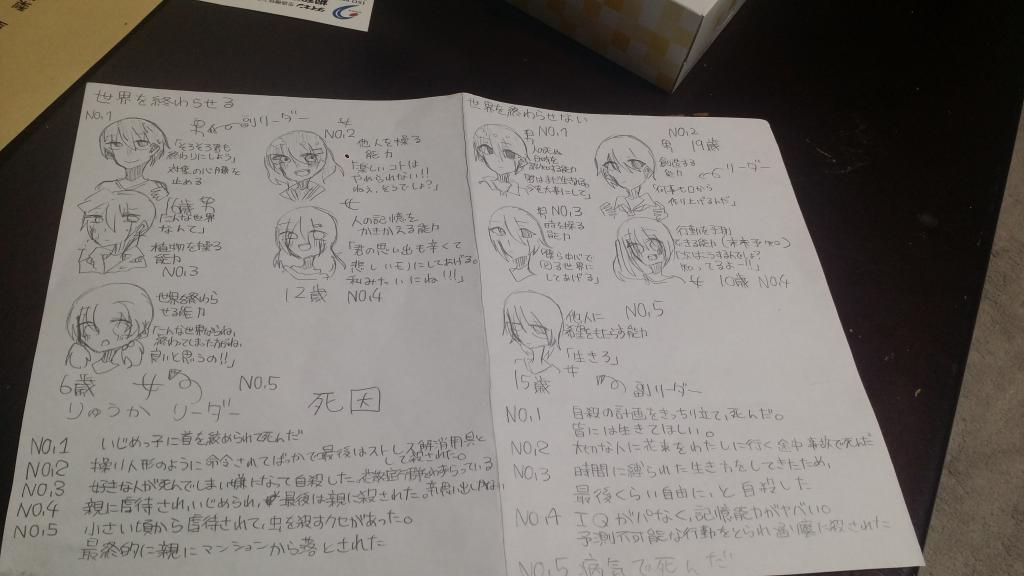 世界を終わらせる
No.1
男 副リーダー
「そろそろ君も
終わりにしよう」
対象の心臓を
止める
女
No.2
他人を操る
能力
「楽しいコトは
やめられない!!
ねぇ、そうでしょ?」
16歳 男
「こんな世界
なんて」
植物を操る
能力
No.3
女
人の記憶を
かきかえる能力
「君の思い出も辛くて
悲しいモノにしてあげる。
私みたいにね!!!」
12歳 No.4
世界を終わら
せる能力
「こんな世界
終わってしまった方がね、
良いと思うの!!」
6歳 女 No.5
りゅうか リーダー
死因
No.1 いじめっ子に首を絞められて死んだ
No.2 操り人形のように命令されてばっかで最後はストレス解消用具と
して殺された。
No.3 好きな人が死んでしまい嫌になって自殺した。
No.4 親に虐待され、いじめられ、最後は親に殺された。
No.5 小さい頃から虐待されて、虫を殺すクセがあった。
最終的に親にマンションから落とされた
世界を終わらせない
男 No.1
人の死ぬ
能力
No.2
男 19歳
創造する
能力 リーダー
作り上げるんだ」
男 No.3
時を操る
能力
「僕ら中心で
回る世界に
してあげる」
行動を予測
できる能力
知ってるよー!!」
女 10歳 No.4
No.5
他人に
希望をもたらす能力
「生きろ」
女
15歳 副リーダー
No.1 自殺の計画をきっちり立て、死んだ。
皆には生きてほしい。
No.2 大切な人に花束をわたしに行く途中事故で死んだ
No.3 時間に縛られた生き方をしてきたため、
最後くらい自由に、と自殺した
No.4 IQがパなく、記憶能力がヤバい。
予測不可能な行動をとられ通り魔に殺された
No.5 病気で死んだ